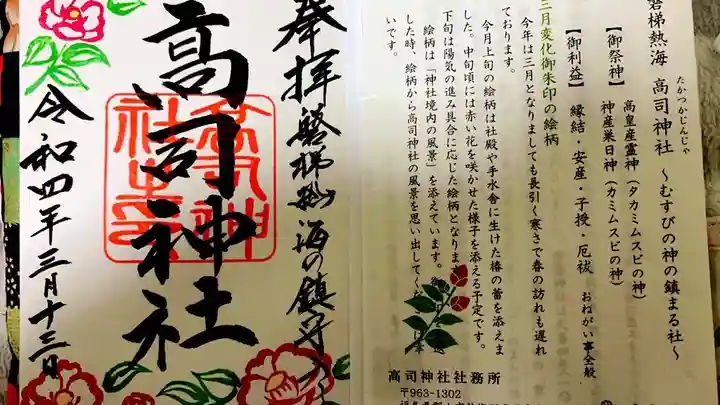 奉拝 磐梯熱海の鎮守
高司神社
令和四年三月十三日
磐梯熱海 高司神社 ～むすびの神の鎮まる社～
たかつかじんじゃ
【御祭神】 高皇産霊神（タカミムスビの神）
神産巣日神（カミムスビの神）
【御利益】 縁結・安産・子授・厄祓 おねがい事全般
三月変化御朱印の絵柄
今年は三月となりましても長引く寒さで春の訪れも遅れ
ております。
今月上旬の絵柄は社殿や手水舎に生けた椿の蕾を添えま
した。中旬頃には赤い花を咲かせた様子を添える予定です。
下旬は陽気の進み具合に応じた絵柄となりま
絵柄は「神社境内の風景」を添えています。
した時、絵柄から高司神社の風景を思い出してく
いです。
高司神社社務所
〒963-1302